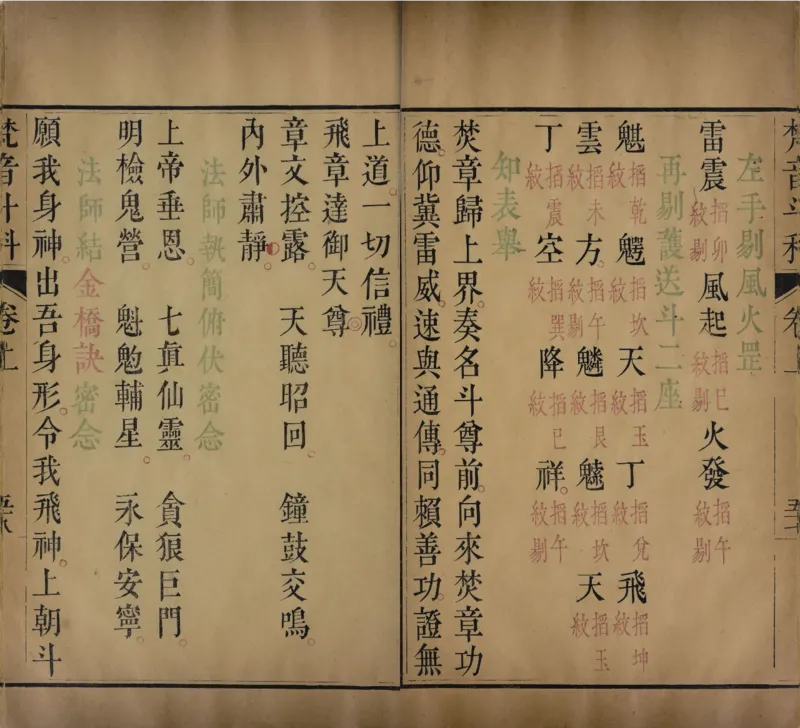 梵音斗科 卷上
左手剔風火罡
雷震 掐卯紋剔 風起 掐巳紋剔 火發 掐午紋剔
再剔護送斗二座
掐乾紋 掐坎紋 天 掐玉紋 丁 掐兌紋 飛 掐坤紋
雲 掐未紋 方。 掐午紋剔 掐艮紋 掐坎紋 天 掐玉紋
丁 掐震紋 空 掐巽紋 降 掐巳紋 祥。 掐午紋剔
知表舉
焚章歸上界。奏名斗尊前。向來焚章功
德。仰冀雷威。速與通傳。同賴善功。證無
上道。一切信禮。
飛章達御天尊
章文控露。 天聽昭回。 鐘鼓交鳴。
內外肅靜。
法師執簡俯伏密念
上帝垂恩。 七眞仙靈。 貪狼巨門。
明檢鬼營。 魁魒輔星。 永保安寧。
法師結金橋訣密念
願我身神。出吾身形。令我飛神。上朝斗
梵音斗科 卷上